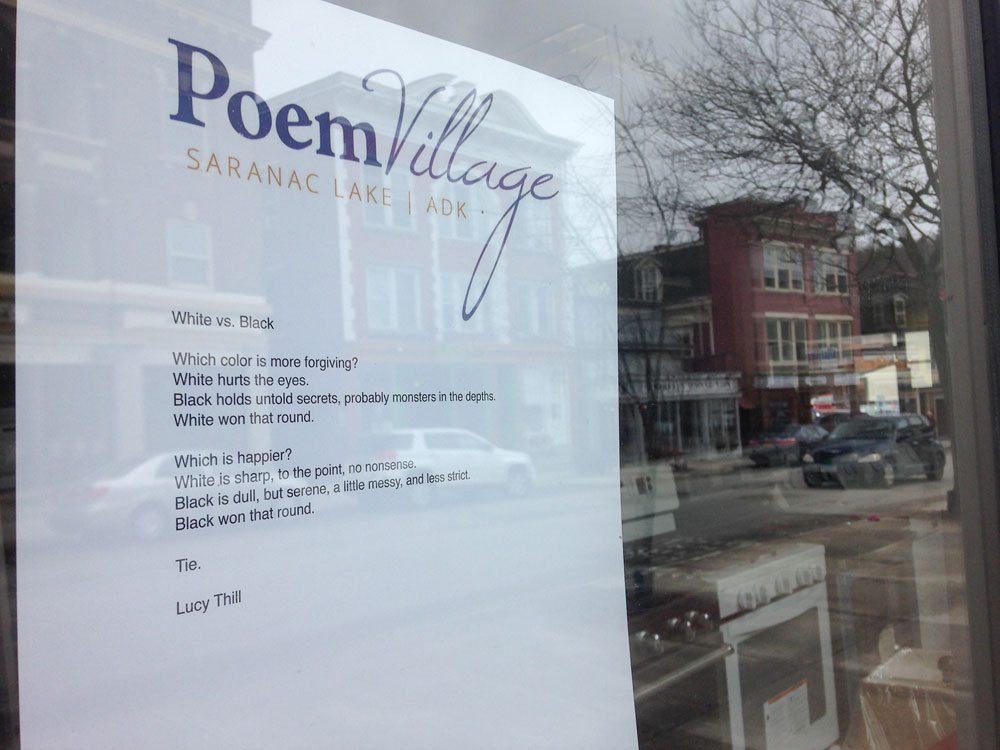 PoemVillage
SARANAC LAKE | ADK
White vs. Black
Which color is more forgiving?
White hurts the eyes.
Black holds untold secrets, probably monsters in the depths.
White won that round.
Which is happier?
White is sharp, to the point, no nonsense.
Black is dull, but serene, a little messy, and less strict.
Black won that round.
Tie.
Lucy Thill